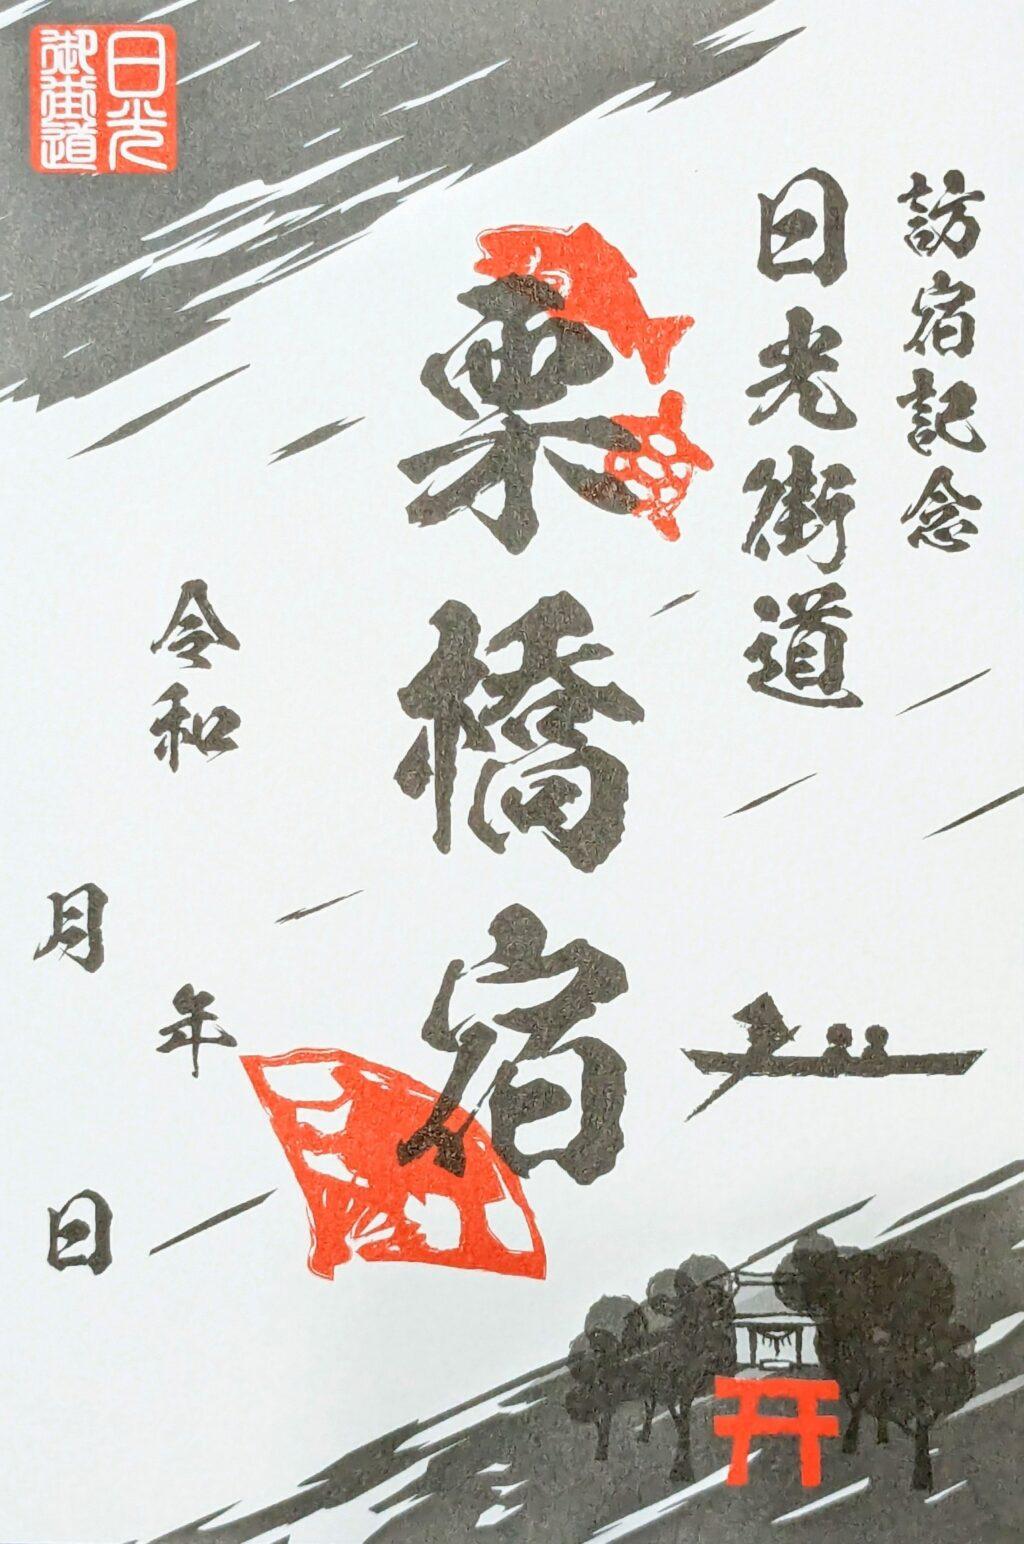 日光
御街道
訪宿記念
日光街道
栗橋宿
令和　年
月　日